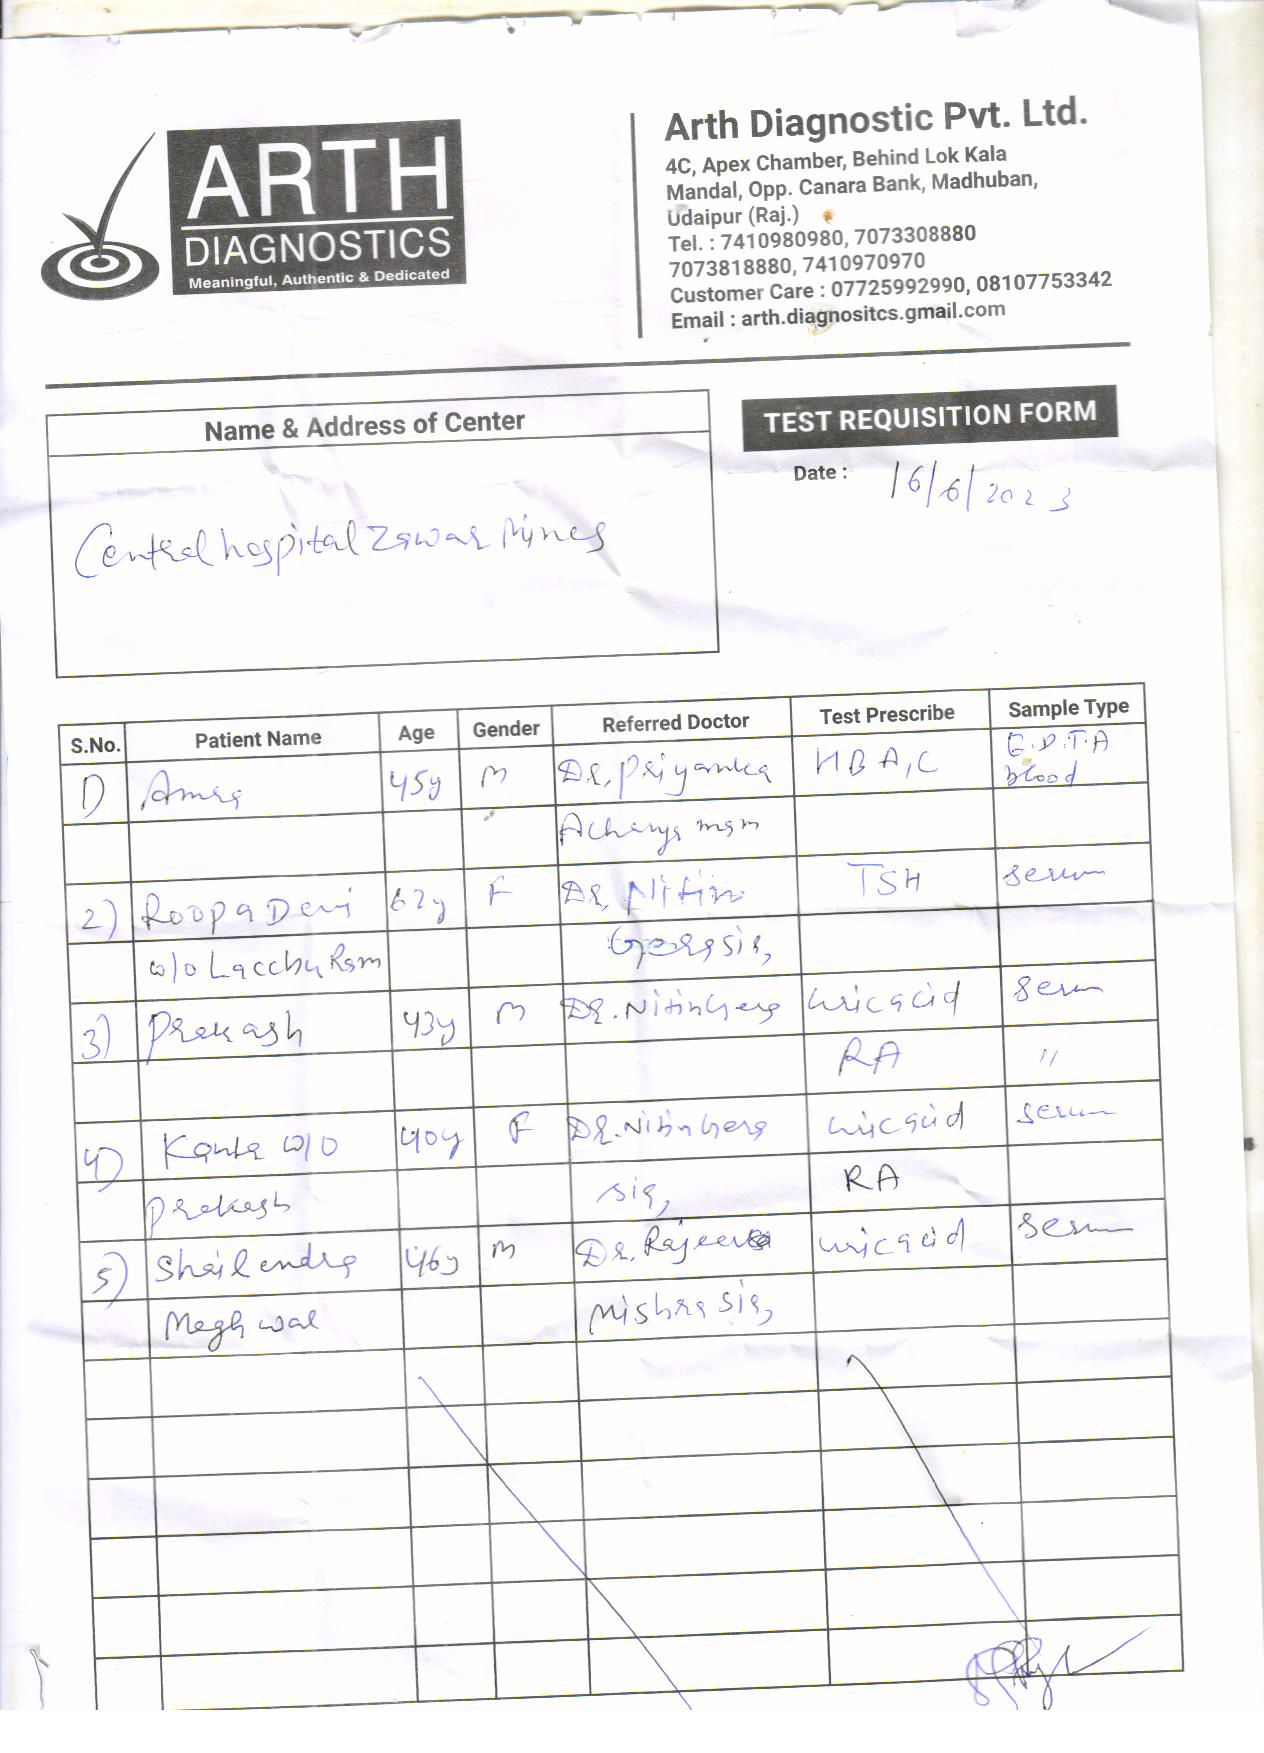 ARTH
DIAGNOSTICS
Meaningful, Authentic & Dedicated
Arth Diagnostic Pvt. Ltd.
4C, Apex Chamber, Behind Lok Kala
Mandal, Opp. Canara Bank, Madhuban,
Udaipur (Raj.)
Tel. : 7410980980, 7073308880
7073818880, 7410970970
Customer Care : 07725992990, 08107753342
Email : arth.diagnositcs.gmail.com
Name & Address of Center
TEST REQUISITION FORM
Date : 16/6/2023
Central hospital Zawar Mines
S.No. Patient Name Age Gender Referred Doctor Test Prescribe Sample Type
1) Amra 45y M Dr. Priyanka HBA1C E.D.T.A
blood
Acharya mam
2) Roopa Devi 62y F Dr. Nitin TSH serum
w/o Lacchu Ram Gerg sir,
3) Prakash 43y M Dr. Nitin Gerg uric acid serum
RA "
4) Kanta w/o 40y F Dr. Nitin Gerg uric acid serum
Prakash sir, RA
5) Shailendra 46y M Dr. Rajeev uric acid serum
Meghwal Mishra sir,